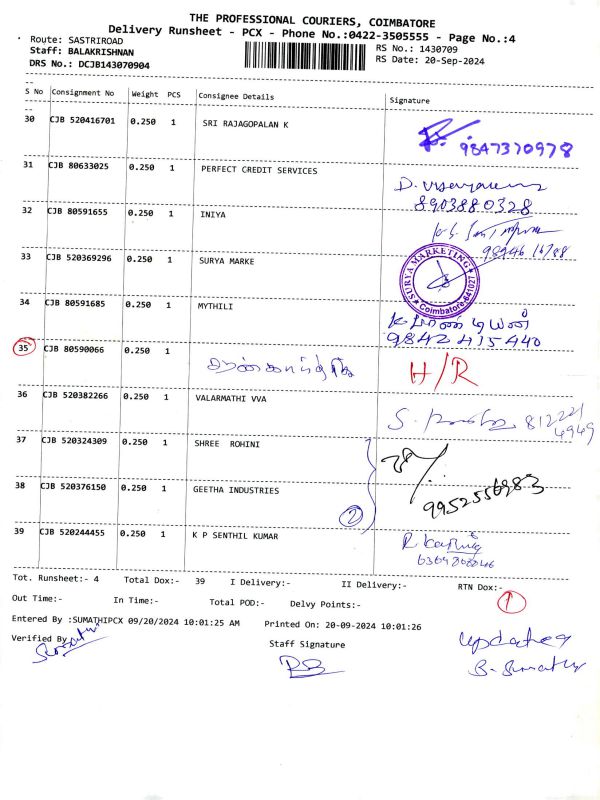 THE PROFESSIONAL COURIERS, COIMBATORE
Delivery Runsheet - PCX - Phone No.:0422-3505555 - Page No.:4
Route: SASTRIROAD
RS No.: 1430709
Staff: BALAKRISHNAN
RS Date: 20-Sep-2024
DRS No.: DCJB143070904
S No Consignment No Weight PCS Consignee Details Signature
30 CJB 520416701 0.250 1 SRI RAJAGOPALAN K
9847370978
31 CJB 80633025 0.250 1 PERFECT CREDIT SERVICES
8903880328
32 CJB 80591655 0.250 1 INIYA
33 CJB 520369296 0.250 1 SURYA MARKE
SURYA MARKETING
Coimbatore-641027
34 CJB 80591685 0.250 1 MYTHILI
9842415440
35 CJB 80590066 0.250 1 H/R
36 CJB 520382266 0.250 1 VALARMATHI VVA
S. 81222
4949
37 CJB 520324309 0.250 1 SHREE ROHINI
38 CJB 520376150 0.250 1 GEETHA INDUSTRIES
9952556983
2
39 CJB 520244455 0.250 1 K P SENTHIL KUMAR
Tot. Runsheet:- 4 Total Dox:- 39 I Delivery:- II Delivery:- RTN Dox:-
1
Out Time:- In Time:- Total POD:- Delvy Points:-
Entered By :SUMATHIPCX 09/20/2024 10:01:25 AM Printed On: 20-09-2024 10:01:26
Verified By
Staff Signature
updated
B. Sumathy